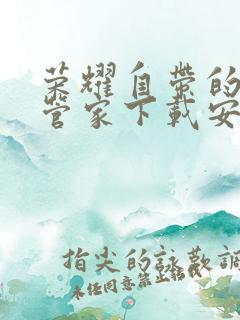 荣耀自带的
管家下载安
指尖的詠歎調
未经同意禁止转载